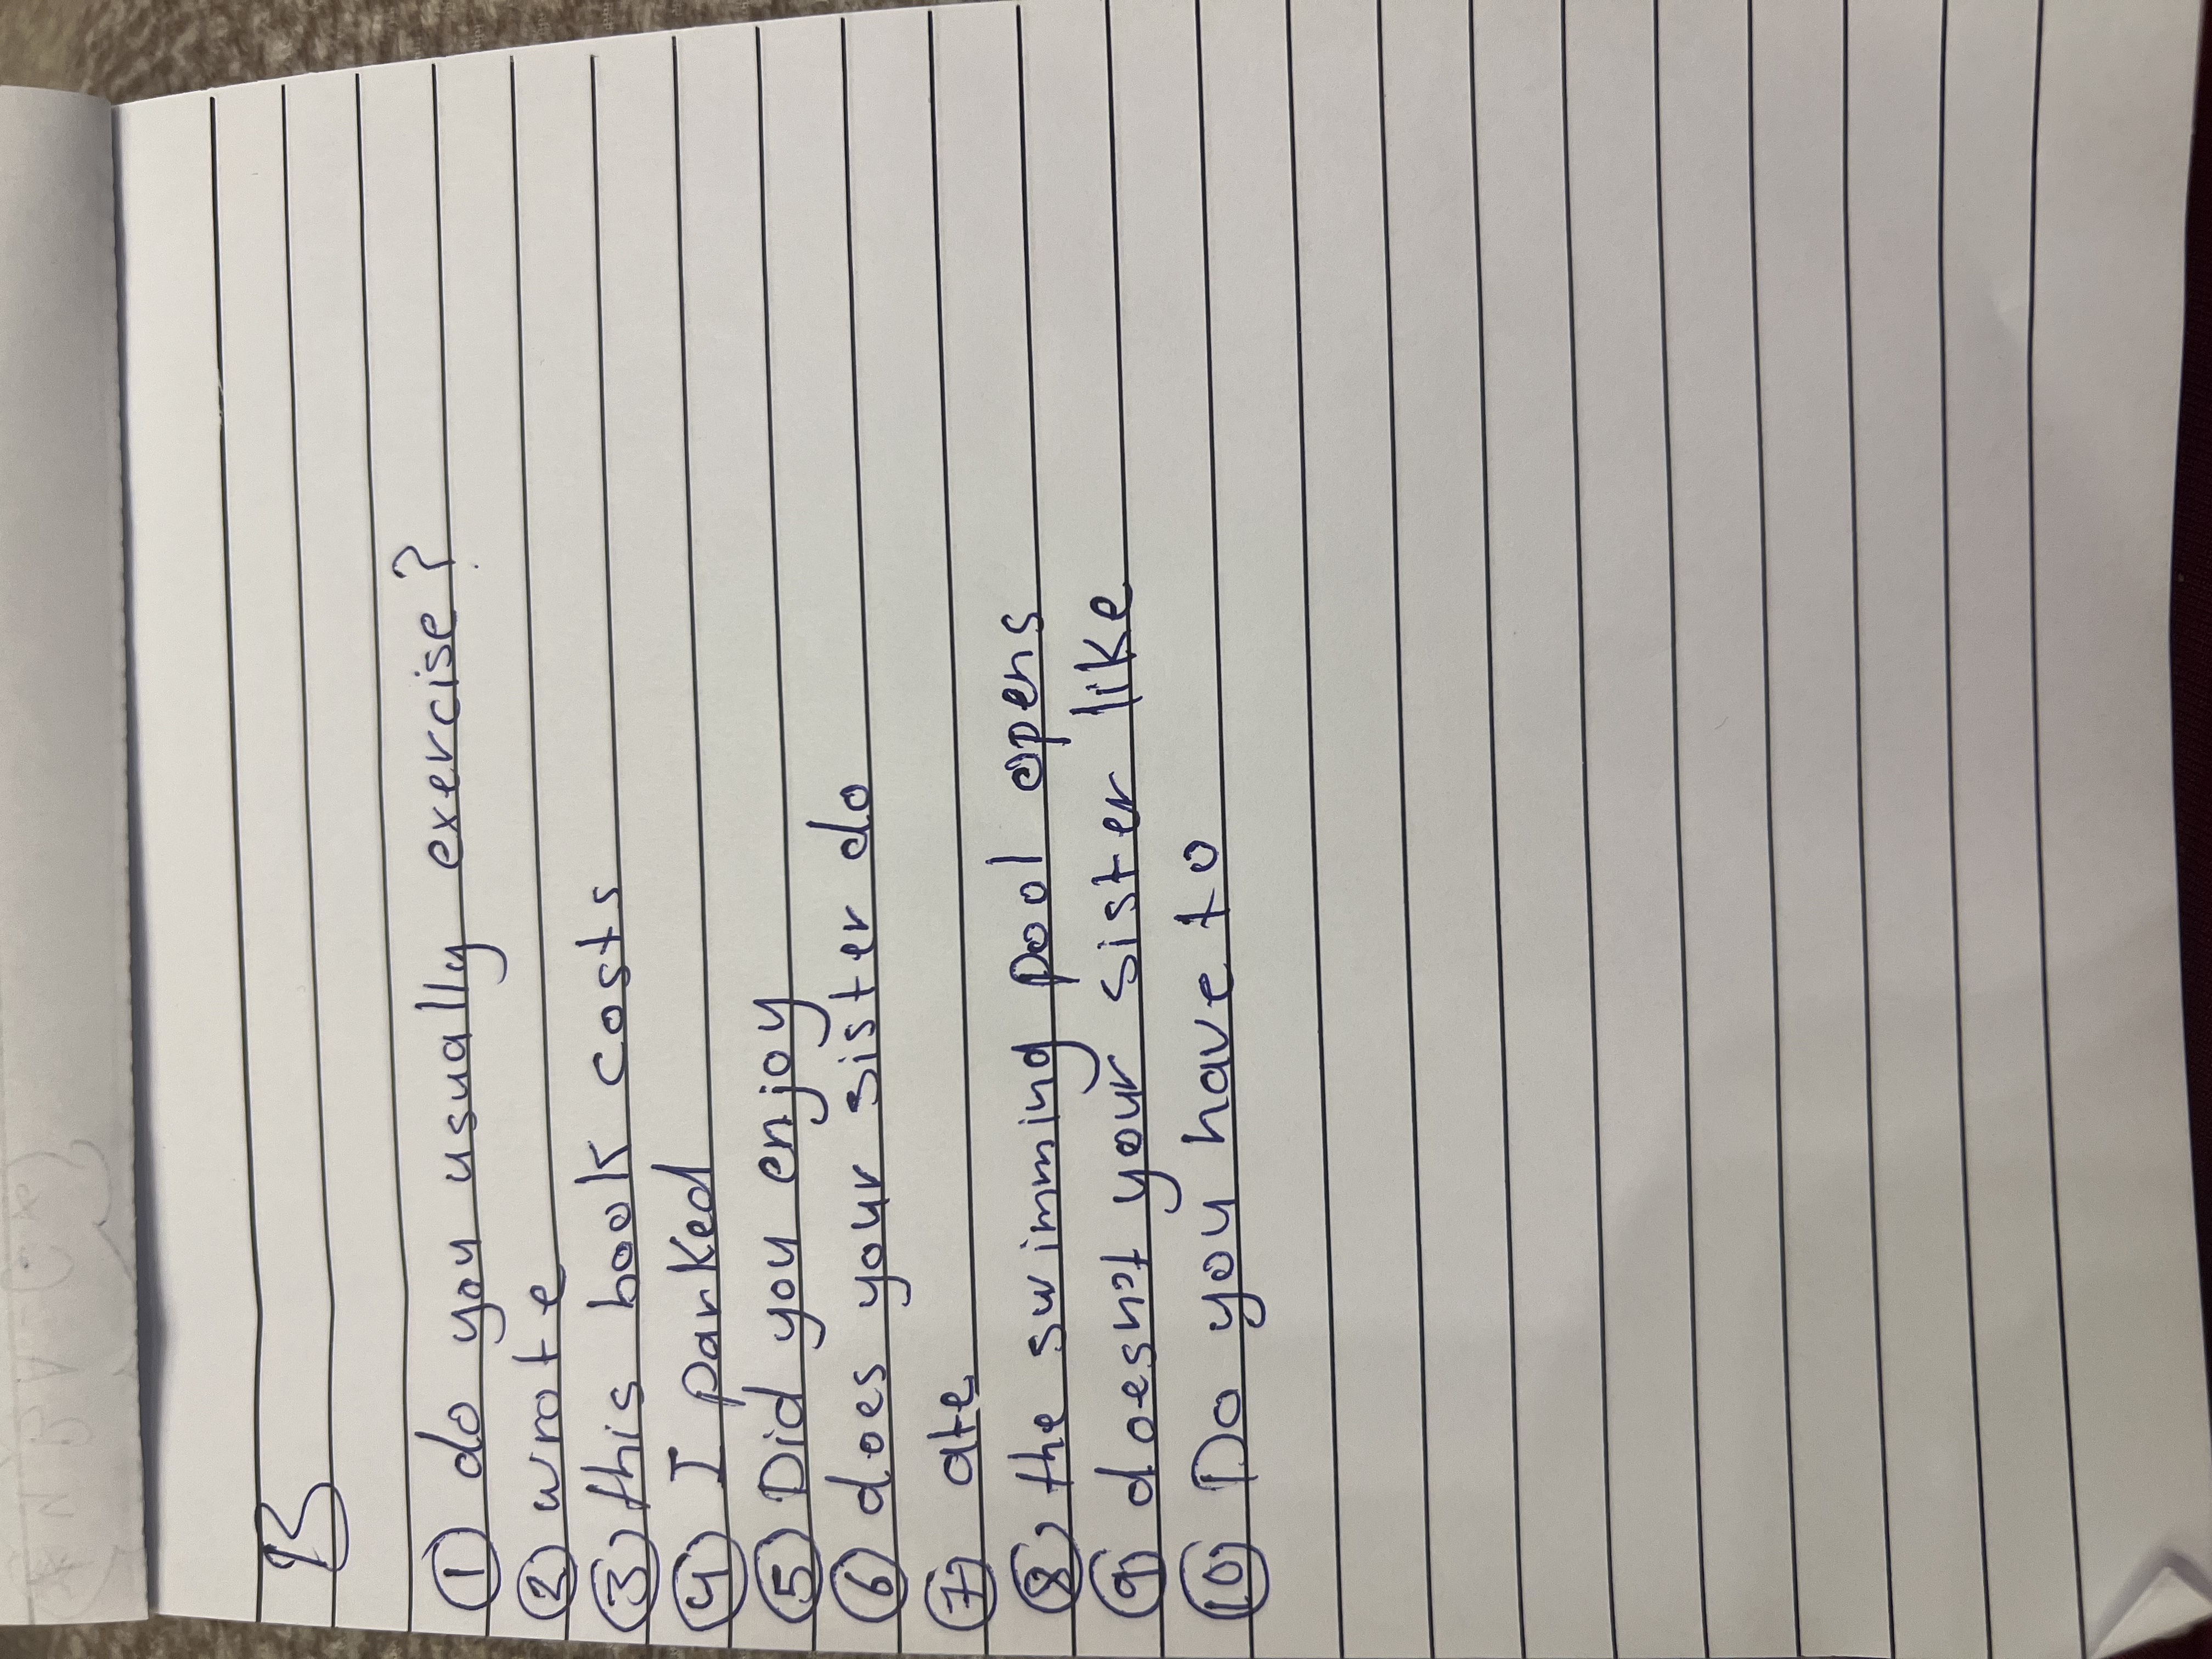 B
① do you usually exercise?
② wrote
③ this book costs
④ I parked
⑤ Did you enjoy
⑥ does your sister do
⑦ ate
⑧ the swimming pool opens
⑨ doesn't your sister like
⑩ Do you have to